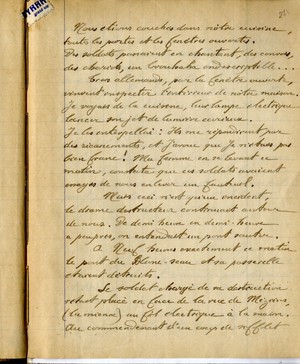 Nous étions couchés dans notre cuisine,
toutes les portes et les fenêtres ouvertes.
Des soldats passaient en chantant, des convois,
des chariots, un brouhaha indescriptible...
Trois allemands, par la fenêtre ouverte,
vinrent inspecter l'intérieur de notre maison.
Je voyais de la cuisine, leur lampe électrique
lancer son jet de lumière
Je les interpellai : Ils me répondirent par
des ricanements, et j'avoue que je n'étais pas
bien brave ! Ma femme en se levant ce
matin, constate que ces soldats avaient
essayé de nous enlever un fauteuil.
Mais ceci n'est qu'un incident,
le drame destructeur continuait autour
de nous. De demi heure en demi-heure
à peu près, on entendait un pont sauter.
A Neuf heures exactement ce matin
le pont du Blanc-seau et sa passerelle
étaient détruits.
Le soldat chargé de sa destruction
restait placé en face de la rue de
(la mienne) un fil électrique à la main.
Au commandement d'un coup de sifflet